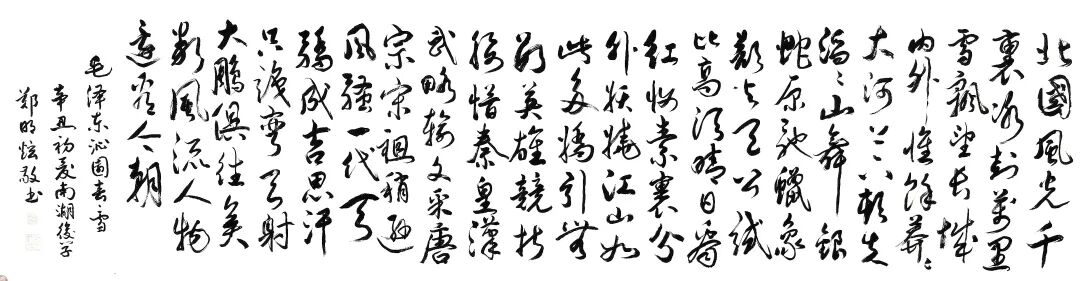 北國風光千
裏冰封萬里
雪飄望長城
内外惟餘莽〻
大河上下頓失
滔〻山舞銀
蛇原馳蠟象
欲与天公試
比高須晴日看
紅妝素裹分
外妖嬈江山如
此多嬌引無
數英雄競折
腰惜秦皇漢
武略輸文采唐
宗宋祖稍遜
風騷一代天
驕成吉思汗
只識彎弓射
大鵬俱往矣
數風流人物
還看今朝
毛澤東沁園春雪
辛丑初夏南湖後学
鄭明炫敬书